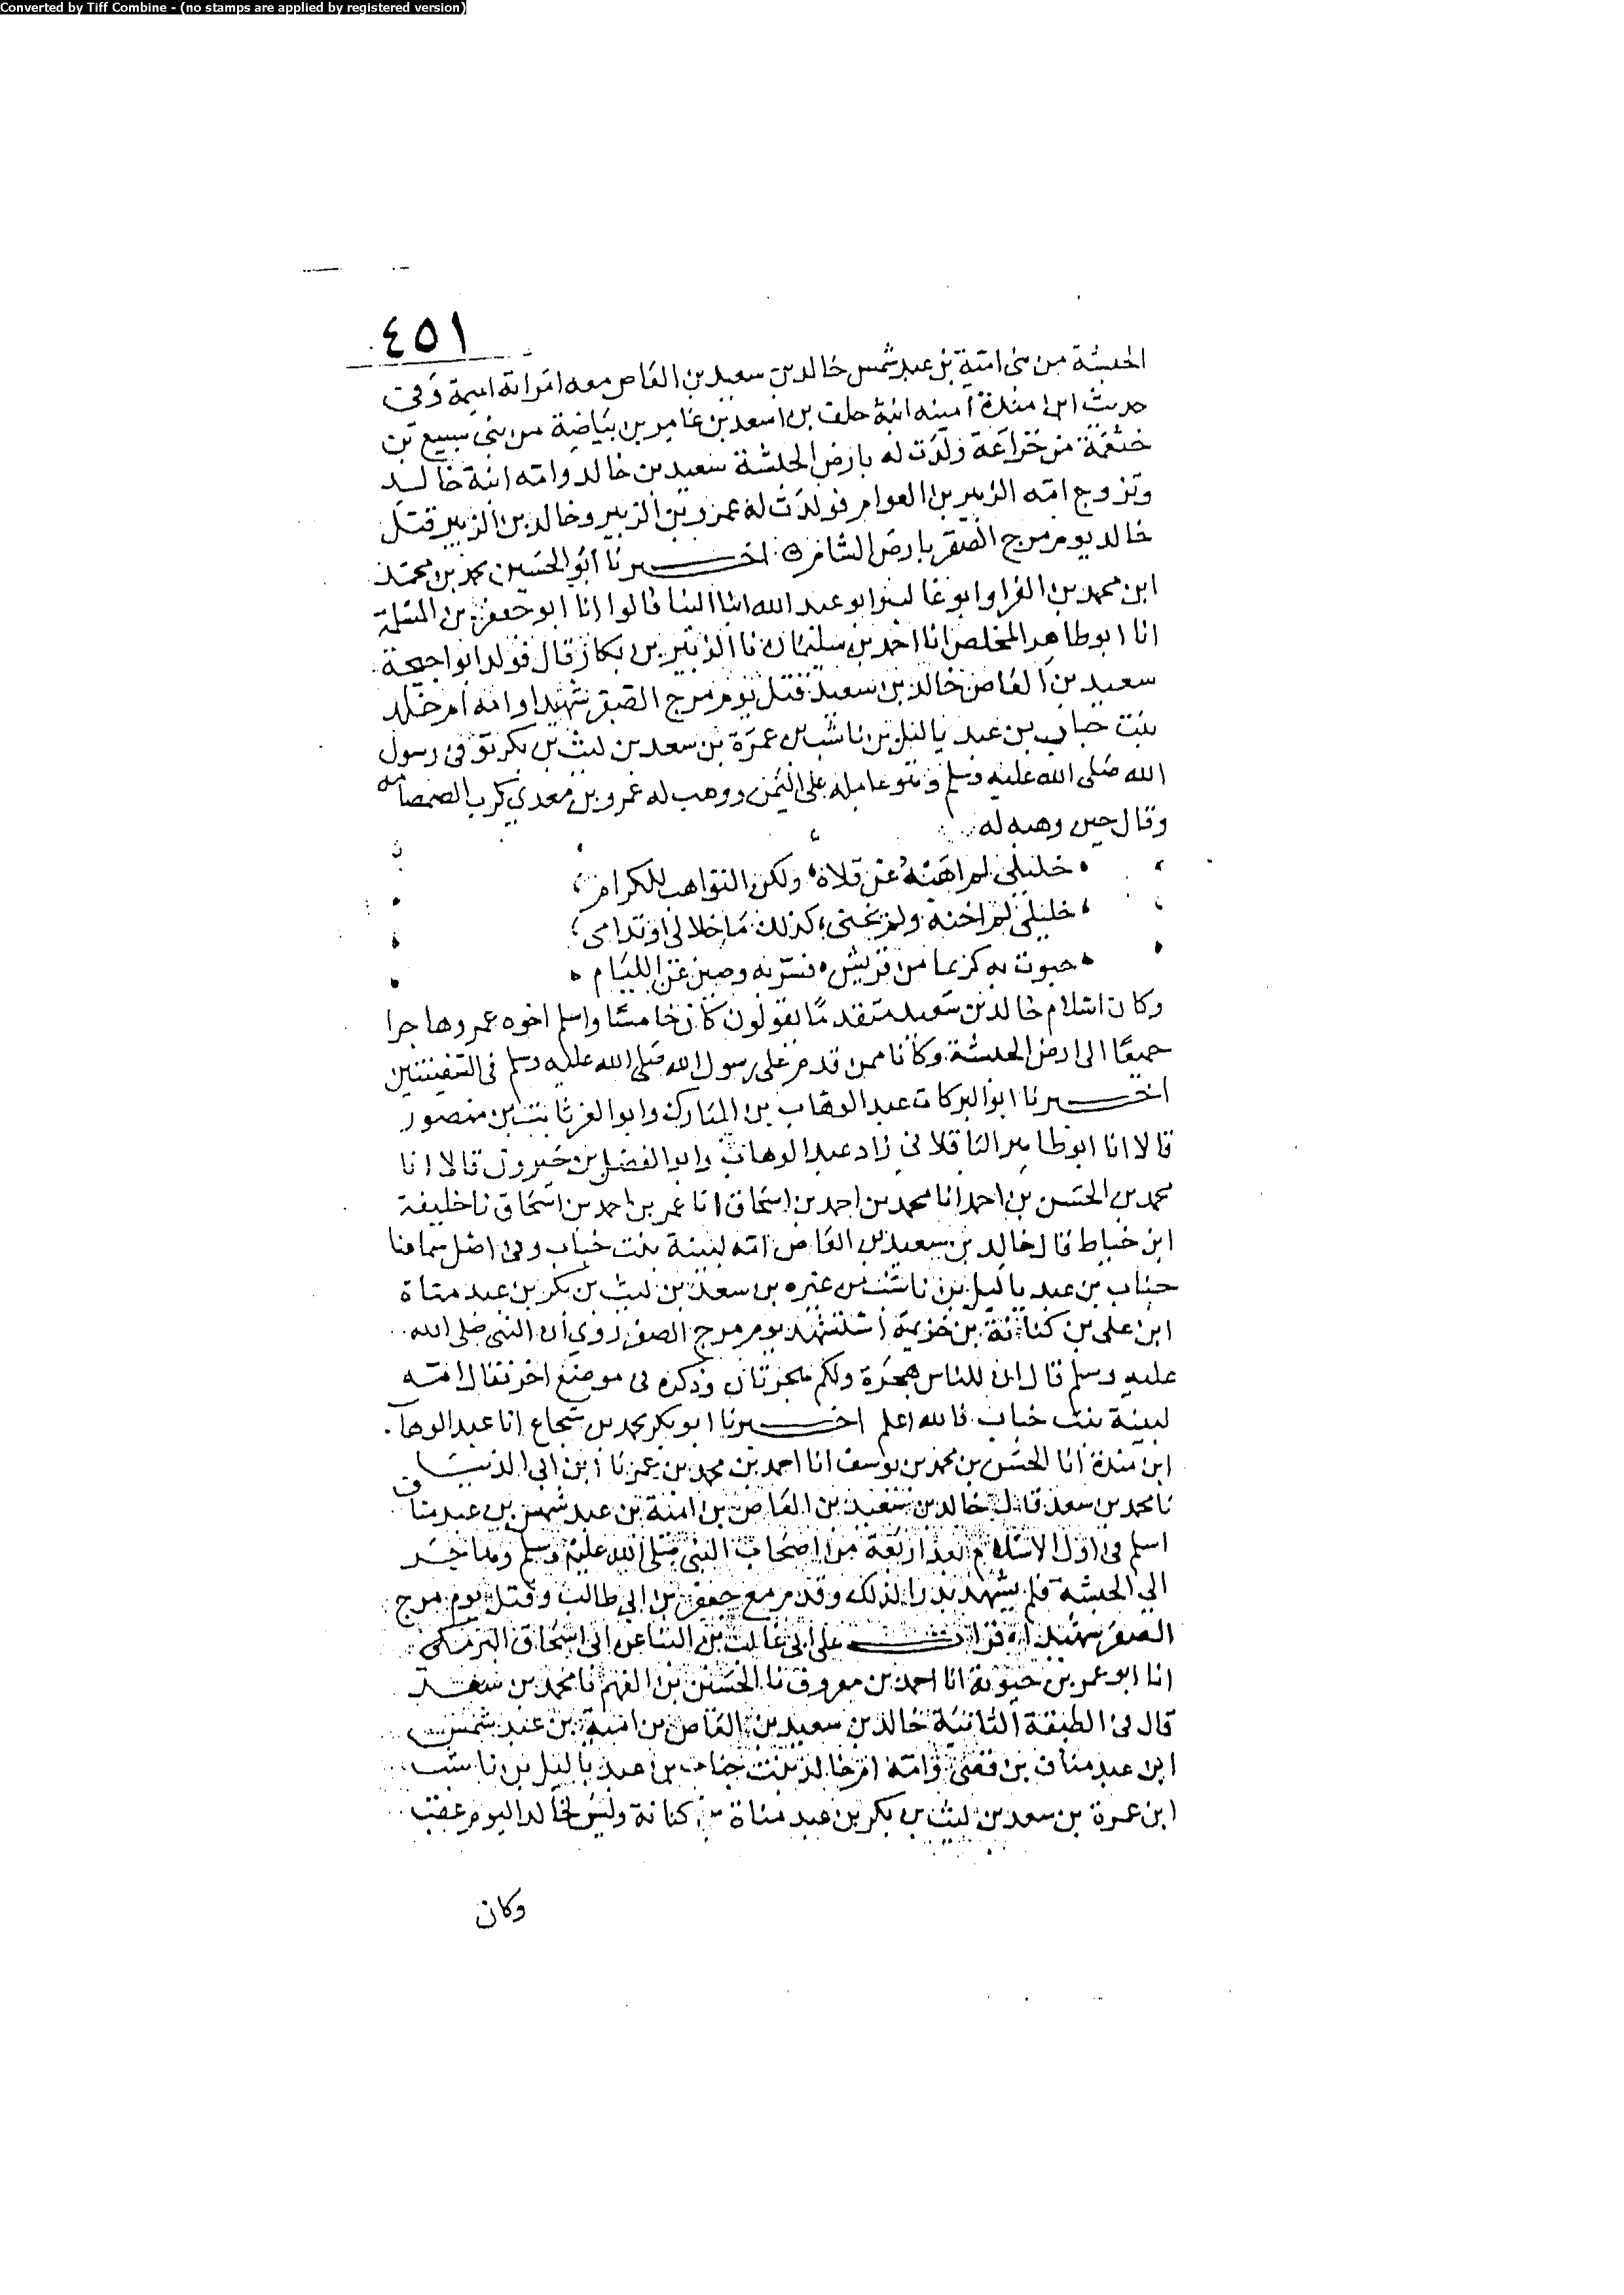 Converted by Tiff Combine - (no stamps are applied by registered version)
٤٥١
الحبشة من بنى امية بن عبد شمس خالد بن سعيد بن العاص معه امراته اميمة وفى
حديث ابن مندة امينه ابنة خلف بن اسعد بن عامر بن بياضة من بنى سبيع بن
خثعمة من خزاعة ولدت له بارض الحبشة سعيد بن خالد وامه ابنة خالد
وتزوج امه الزبير بن العوام فولدت له عمرو بن الزبير وخالد بن الزبير قتل
خالد يوم مرج الصفر بارض الشام اخبرنا ابو الحسين محمد بن محمد
ابن محمد بن الفرا وابو غالب وابو عبد الله ابنا البنا قالوا انا ابو جعفر بن المسلمة
انا ابو طاهر المخلص انا احمد بن سليمان نا الزبير بن بكار قال فولد ابو احيحة
سعيد بن العاص خالد بن سعيد قتل يوم مرج الصفر شهيدا وامه ام خالد
بنت حباب بن عبد ياليل بن ناشب بن عمرة بن سعد بن ليث بن بكر توفى رسول
الله صلى الله عليه وسلم وهو عامله على اليمن ووهب له عمرو بن معدي كرب الصمصامه
وقال حين وهبه له
خليلى لم اهبه عن قلاه ولكن التواهب للكرام
خليلى لم اخنه ولم يخنى كذلك ما خلالى او ندامى
حبوت به كريما من قريش فسر به وصين عن الليام
وكان اسلام خالد بن سعيد متقدما يقولون كان خامسا واسلم اخوه عمرو هاجرا
جميعا الى ارض الحبشة وكانا ممن قدم على رسول الله صلى الله عليه وسلم فى السفينتين
اخبرنا ابو البركات عبد الوهاب بن المبارك وابو العز ثابت بن منصور
قالا انا ابو طاهر الباقلانى زاد عبد الوهاب وابو الفضل بن خيرون قالا انا
محمد بن الحسن بن احمد انا محمد بن احمد بن اسحاق انا عمر بن احمد بن اسحاق نا خليفة
ابن خياط قال خالد بن سعيد بن العاص امه لبينة بنت خباب وفى اصل سماعنا
حباب بن عبد ياليل بن ناشب بن عنزه بن سعد بن ليث بن بكر بن عبد مناة
ابن على بن كنانة بن خزيمة استشهد يوم مرج الصفر روي ان النبى صلى الله
عليه وسلم قال ان للناس هجرة ولكم هجرتان وذكره فى موضع اخر فقال امه
لبينة بنت خباب فالله اعلم اخبرنا ابو بكر محمد بن شجاع انا عبد الوهاب
ابن مندة انا الحسن بن محمد بن يوسف انا احمد بن محمد بن عمر نا ابن ابى الدنيا
نا محمد بن سعد قال خالد بن سعيد بن العاص بن امية بن عبد شمس بن عبد مناف
اسلم فى اول الاسلام بعد اربعة من اصحاب النبى صلى الله عليه وسلم وهاجر
الى الحبشة فلم يشهد بدرا لذلك وقدم مع جعفر بن ابى طالب وقتل يوم مرج
الصفر شهيدا قرات على ابى غالب بن البنا عن ابى اسحاق البرمكى
انا ابو عمر بن حيوية انا احمد بن معروف نا الحسين بن الفهم نا محمد بن سعد
قال فى الطبقة الثانية خالد بن سعيد بن العاص بن امية بن عبد شمس
ابن عبد مناف بن قصى وامه ام خالد بنت خباب بن عبد ياليل بن ناشب
ابن عمرة بن سعد بن ليث بن بكر بن عبد مناة بن كنانة وليس لخالد اليوم عقب
وكان